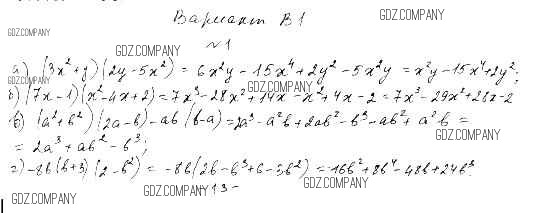 Вариант В1
GDZ.COMPANY
GDZ.COMPANY
GDZ.COMPANY
№1
а) (3x² + y)(2y - 5x²) = 6x²y - 15x⁴ + 2y² - 5x²y = x²y - 15x⁴ + 2y²;
GDZ.COMPANY
GDZ.COMPANY
б) (7x - 1)(x² - 4x + 2) = 7x³ - 28x² + 14x - x² + 4x - 2 = 7x³ - 29x² + 18x - 2
в) (a² + b²)(2a - b) - ab(b - a) = 2a³ - a²b + 2ab² - b³ - ab² + a²b =
GDZ.COMPANY
GDZ.COMPANY
= 2a³ + ab² - b³;
г) -8b(b+3)(2 - b²) = -8b(2b - b³ + 6 - 3b²) = -16b² + 8b⁴ - 48b + 24b³
GDZ.COMPANY
GDZ.COMPANY
GDZ.COMPANY
- 13 -